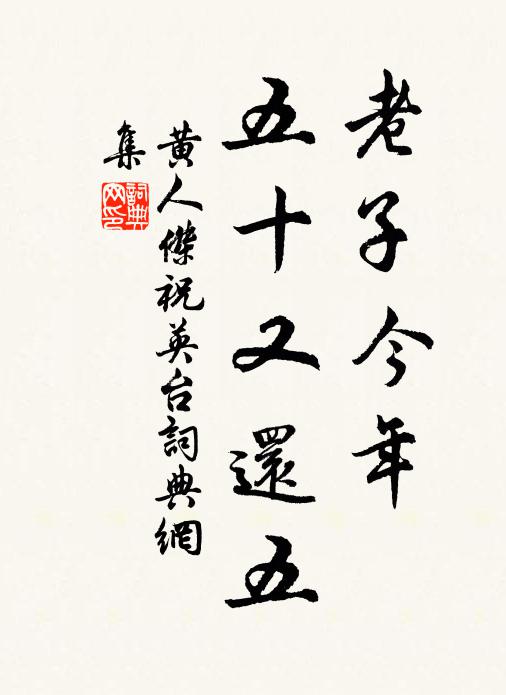 老子今年
五十又還五
黃人傑祝英台詞典網
集
詞典网印